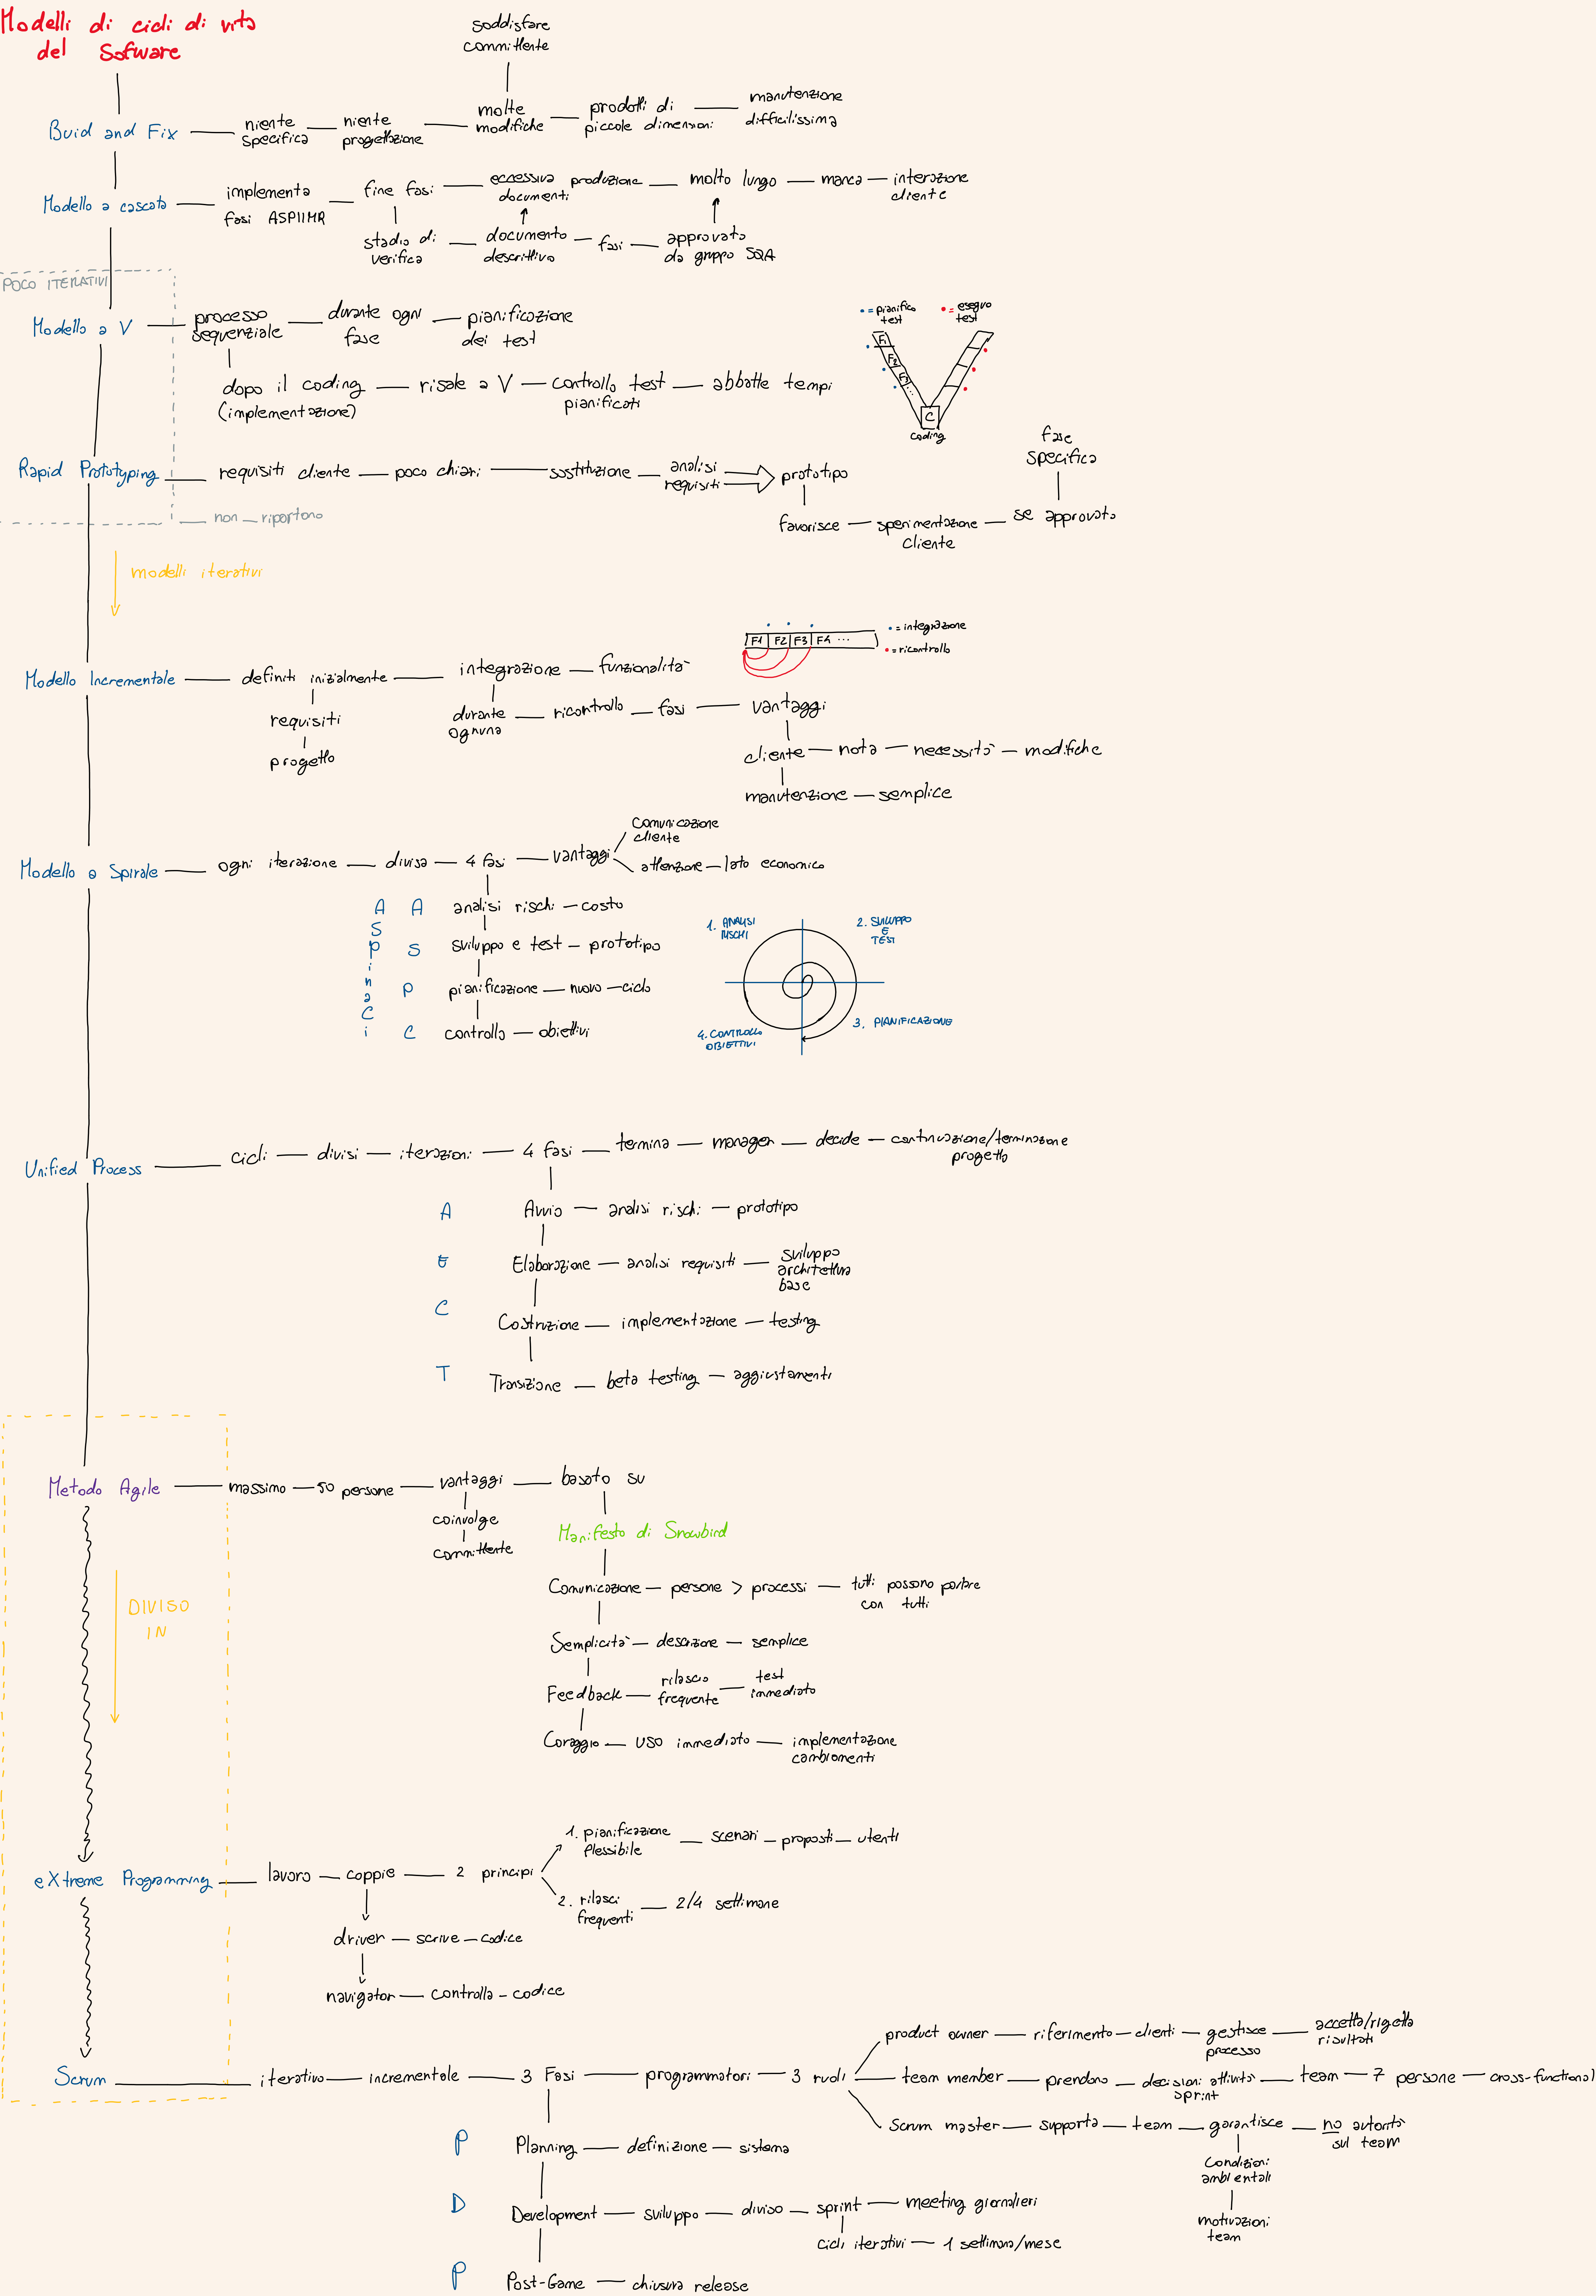 Modelli di cicli di vita
del Sofware
soddisfare
committente
Buid and Fix
niente
specifica
niente
progettazione
molte
modifiche
prodotti di
piccole dimensioni
manutenzione
difficilissima
Modello a cascata
implementa
fasi ASPIIMR
fine fasi
eccessiva produzione
documenti
molto lungo
manca
interazione
cliente
stadio di
verifica
documento
descrittivo
fasi
approvato
da gruppo SQA
POCO ITERATIVI
Modello a V
processo
sequenziale
durante ogni
fase
pianificazione
dei test
dopo il coding
(implementazione)
risale a V
controllo test
pianificati
abbatte tempi
• = pianifico
test
• = eseguo
test
F1
F2
F3
...
C
coding
Rapid Prototyping
requisiti cliente
poco chiari
sostituzione
analisi
requisiti
prototipo
favorisce
sperimentazione
cliente
se approvato
fase
specifica
non ripartono
modelli iterativi
Modello Incrementale
definiti inizialmente
requisiti
progetto
integrazione
funzionalità
durante
ognuna
ricontrollo
fasi
vantaggi
F1 F2 F3 F4 ...
• = integrazione
• = ricontrollo
cliente
nota
necessità
modifiche
manutenzione
semplice
Modello a Spirale
ogni iterazione
divisa
4 fasi
vantaggi
Comunicazione
cliente
attenzione
lato economico
A
S
P
i
n
a
C
i
A
analisi rischi
costo
S
sviluppo e test
prototipo
P
pianificazione
nuovo
ciclo
C
controllo
obiettivi
1. ANALISI
RISCHI
2. SVILUPPO
E
TEST
3. PIANIFICAZIONE
4. CONTROLLO
OBIETTIVI
Unified Process
cicli
divisi
iterazioni
4 fasi
termina
manager
decide
continuazione/terminazione
progetto
A
Avvio
analisi rischi
prototipo
E
Elaborazione
analisi requisiti
sviluppo
architettura
base
C
Costruzione
implementazione
testing
T
Transizione
beta testing
aggiustamenti
Metodo Agile
massimo
50 persone
vantaggi
coinvolge
committente
basato su
Manifesto di Snowbird
Comunicazione
persone > processi
tutti possono parlare
con tutti
Semplicità
descrizione
semplice
Feedback
rilascio
frequente
test
immediato
Coraggio
uso immediato
implementazione
cambiamenti
DIVISO
IN
eXtreme Programming
lavoro
coppie
2 principi
1. pianificazione
flessibile
scenari
proposti
utenti
2. rilasci
frequenti
2/4 settimane
driver
scrive
codice
navigator
controlla
codice
Scrum
iterativo
incrementale
3 Fasi
programmatori
3 ruoli
product owner
riferimento
clienti
gestisce
processo
accetta/rigetta
risultati
team member
prendono
decisioni attività
sprint
team
7 persone
cross-functional
Scrum master
supporta
team
garantisce
no autorità
sul team
Condizioni
ambientali
motivazioni
team
P
Planning
definizione
sistema
D
Development
sviluppo
diviso
sprint
meeting giornalieri
cicli iterativi
1 settimana/mese
P
Post-Game
chiusura release